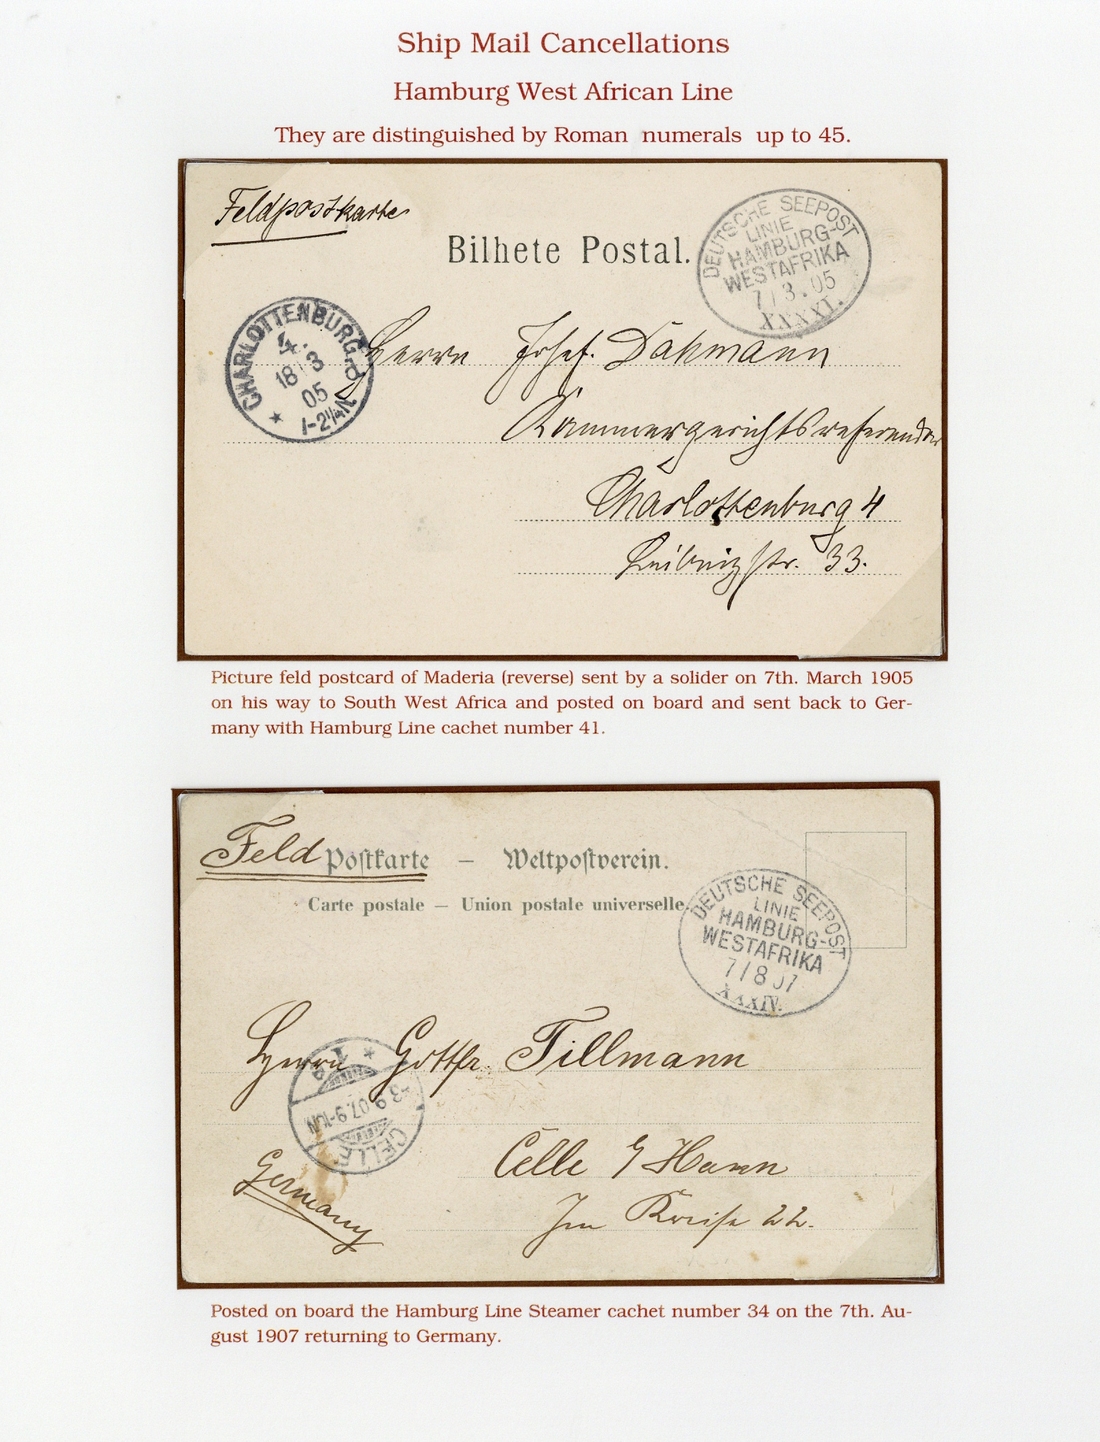 Ship Mail Cancellations
Hamburg West African Line
They are distinguished by Roman numerals up to 45.
Feldpostkarte
Bilhete Postal.
DEUTSCHE SEEPOST
LINIE
HAMBURG-
WESTAFRIKA
7/3.05
XXXXI.
CHARLOTTENBURG
4.
18/3
05
1-2¼N
Herrn Josef Dahmann
Kammergerichtsreferendar
Charlottenburg 4
Leibnizstr. 33.
Picture feld postcard of Maderia (reverse) sent by a solider on 7th. March 1905
on his way to South West Africa and posted on board and sent back to Ger-
many with Hamburg Line cachet number 41.
Feld Postkarte — Weltpostverein.
Carte postale — Union postale universelle.
DEUTSCHE SEEPOST
LINIE
HAMBURG-
WESTAFRIKA
7/8 07
XXXIV.
Herrn Gottfr. Tillmann
CELLE
3.9.07.9-10N
Celle Hann
Germany
Im Kreise 22.
Posted on board the Hamburg Line Steamer cachet number 34 on the 7th. Au-
gust 1907 returning to Germany.